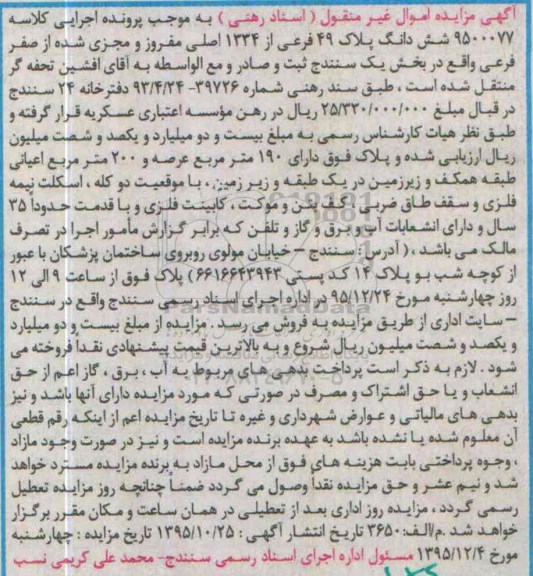 آگهی مزایده اموال غیر منقول ( اسناد رهنی ) به موجب پرونده اجرایی کلاسه
۹۵۰۰۰۷۷ شش دانگ پلاک ۴۹ فرعی از ۱۳۳۴ اصلی مفروز و مجزی شده از صفر
فرعی واقع در بخش یک سنندج ثبت و صادر و مع الواسطه به آقای افشین تحفه گر
منتقل شده است ، طبق سند رهنی شماره ۳۹۷۲۶- ۹۳/۴/۲۴ دفترخانه ۲۴ سنندج
در قبال مبلغ ۲۵/۳۲۰/۰۰۰/۰۰۰ ریال در رهن مؤسسه اعتباری عسکریه قرار گرفته و
طبق نظر هیات کارشناس رسمی به مبلغ بیست و دو میلیارد و یکصد و شصت میلیون
ریال ارزیابی شده و پلاک فوق دارای ۱۹۰ متر مربع عرصه و ۲۰۰ متر مربع اعیانی
طبقه همکف و زیرزمین در یک طبقه و زیر زمین ، با موقعیت دو کله ، اسکلت نیمه
فلزی و سقف طاق ضربی ، کف و موکت ، کابینت فلزی و با قدمت حدوداً ۳۵
سال و دارای انشعابات آب و برق و گاز و تلفن که برابر گزارش مأمور اجرا در تصرف
مالک می باشد ، ( آدرس : سنندج – خیابان مولوی روبروی ساختمان پزشکان با عبور
از کوچه شب بو پلاک ۱۴ کد پستی ۶۶۱۶۶۴۳۹۴۳) پلاک فوق از ساعت ۹ الی ۱۲
روز چهارشنبه مورخ ۹۵/۱۲/۲۴ در اداره اجرای اسناد رسمی سنندج واقع در سنندج
– سایت اداری از طریق مزایده به فروش می رسد . مزایده از مبلغ بیست و دو میلیارد
و یکصد و شصت میلیون ریال شروع و به بالاترین قیمت پیشنهادی نقداً فروخته می
شود . لازم به ذکر است پرداخت بدهی های مربوط به آب ، برق ، گاز اعم از حق
انشعاب و یا حق اشتراک و مصرف در صورتی که مورد مزایده دارای آنها باشد و نیز
بدهی های مالیاتی و عوارض شهرداری و غیره تا تاریخ مزایده اعم از اینکه رقم قطعی
آن معلوم شده یا نشده باشد به عهده برنده مزایده است و نیز در صورت وجود مازاد
، وجوه پرداختی بابت هزینه های فوق از محل مازاد به برنده مزایده مسترد خواهد
شد و نیم عشر و حق مزایده نقداً وصول می گردد ضمناً چنانچه روز مزایده تعطیل
رسمی گردد ، مزایده روز اداری بعد از تعطیلی در همان ساعت و مکان مقرر برگزار
خواهد شد .م/الف:۳۶۵۰ تاریخ انتشار آگهی : ۱۳۹۵/۱۰/۲۵ تاریخ مزایده : چهارشنبه
مورخ ۱۳۹۵/۱۲/۴ مسئول اداره اجرای اسناد رسمی سنندج- محمد علی کریمی نسب
ParsNamadData